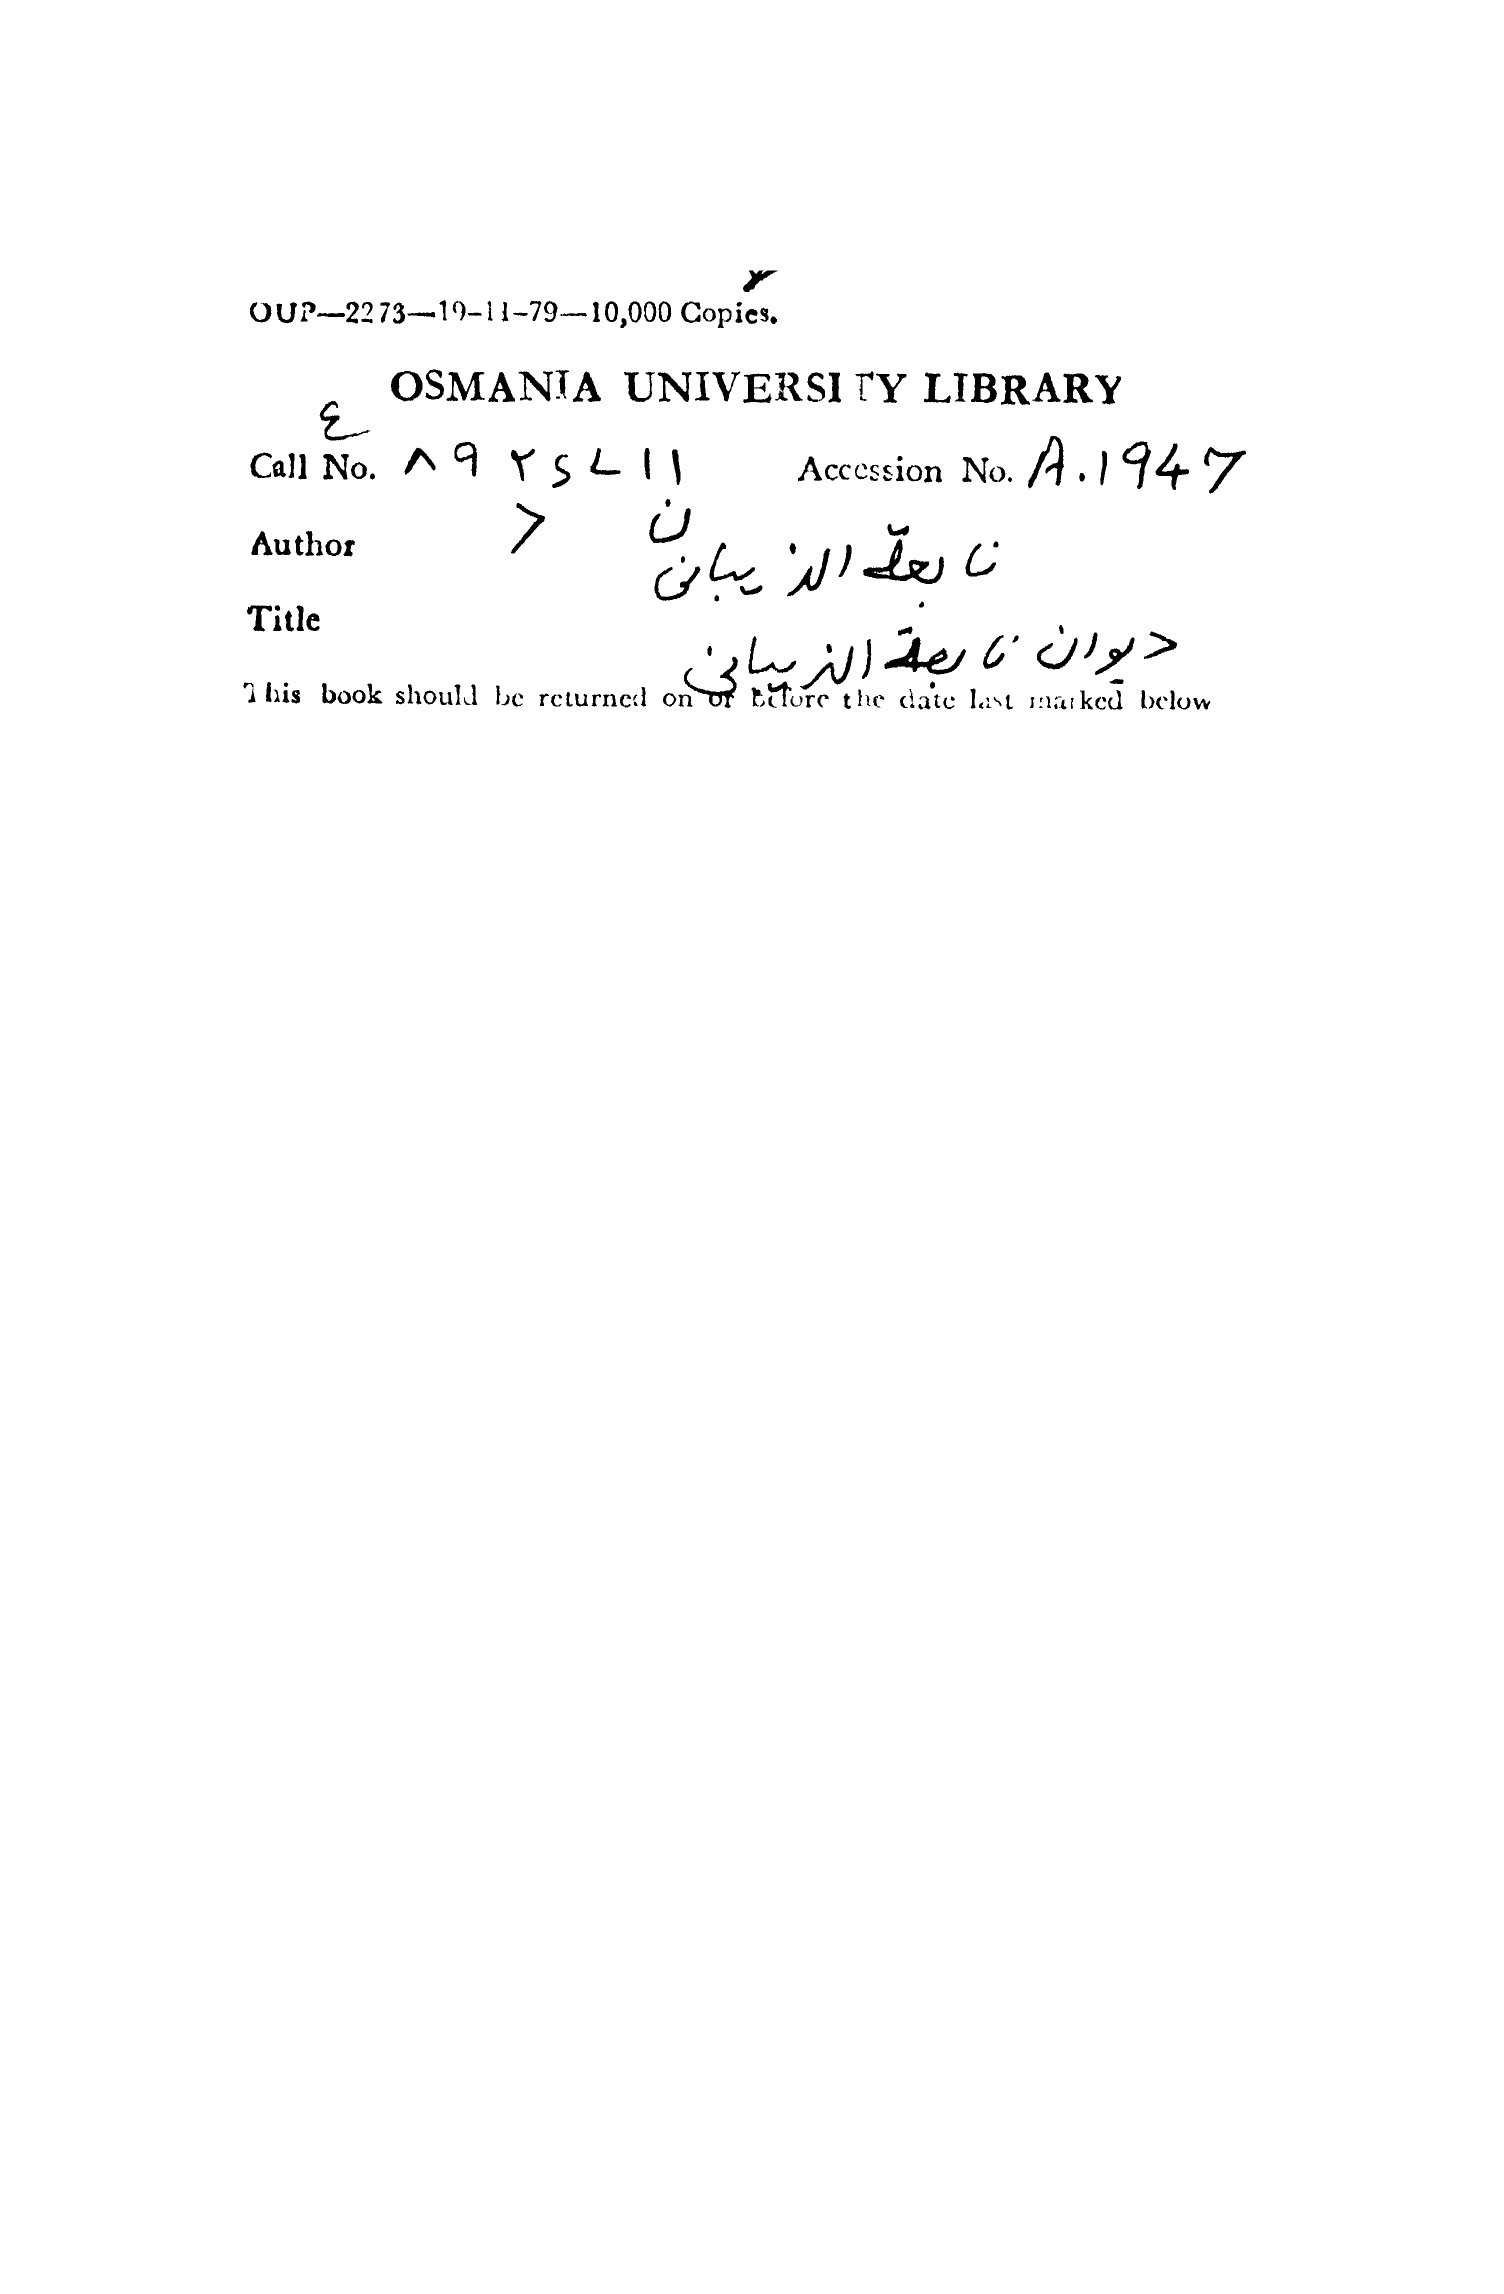 OUP—2273—19-11-79—10,000 Copies.
OSMANIA UNIVERSITY LIBRARY
ع
Call No. ٨٩٢۶۷١١ Accession No. A.1947
د ن
Author نابغۃ الذیبانی
Title دیوان نابغۃ الذیبانی
This book should be returned on or before the date last marked below